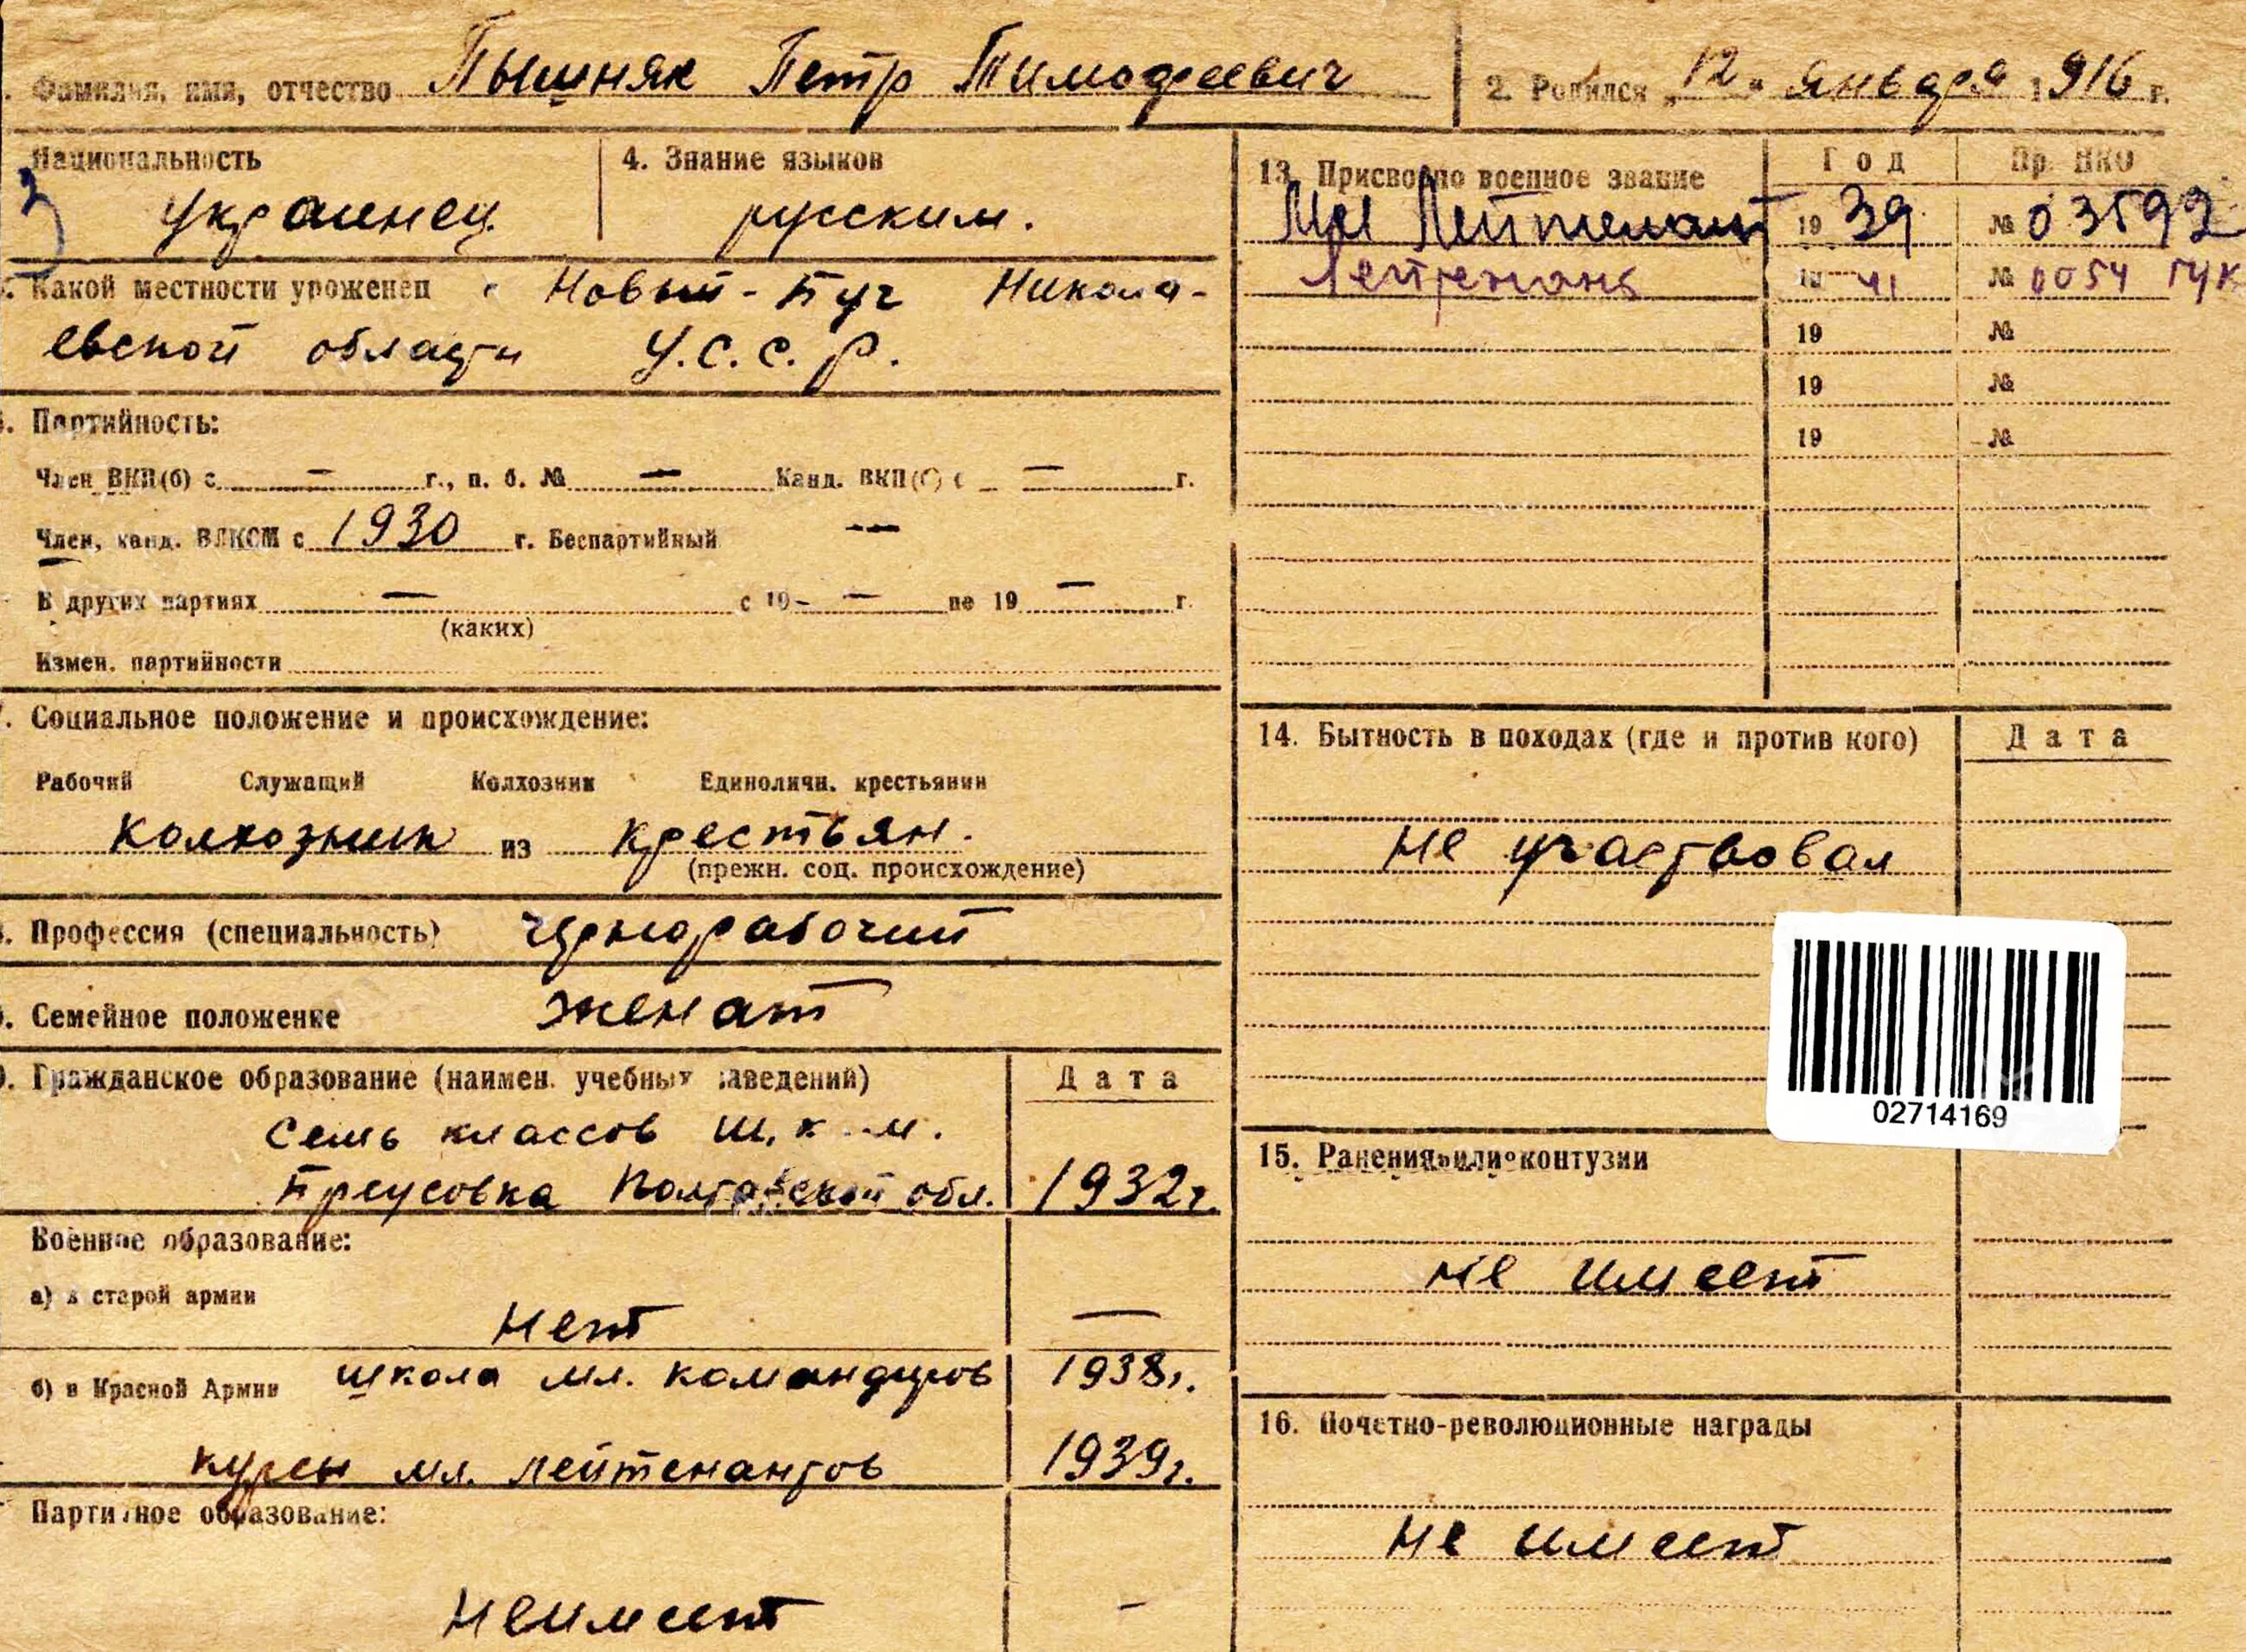 Фамилия, имя, отчество Пышняк Петр Тимофеевич
2. Родился "12" января 1916 г.
Национальность
украинец
4. Знание языков
русским.
Какой местности уроженец с Новый-Буг Никола-
евской области У.С.С.Р.
Партийность:
Член ВКП(б) с — г., п. б. № — Канд. ВКП(б) с — г.
Член, канд. ВЛКСМ с 1930 г. Беспартийный —
В других партиях — с 19 — по 19 — г.
(каких)
Измен. партийности
Социальное положение и происхождение:
Рабочий Служащий Колхозник Единоличн. крестьянин
колхозник из крестьян.
(прежн. соц. происхождение)
Профессия (специальность) чернорабочий
Семейное положение женат
Гражданское образование (наимен. учебных заведений) Дата
Семь классов ш.к.м.
Бреусовка Полтавской обл. 1932г.
Военное образование:
а) в старой армии
Нет —
б) в Красной Армии школа мл. командиров 1938г.
курсы мл. лейтенантов 1939г.
Партийное образование:
Не имеет —
13. Присвоено военное звание Год Пр. НКО
Мл Лейтенант 19 39 № 03592
Лейтенант 19 41 № 0054
19 №
19 №
19 №
14. Бытность в походах (где и против кого) Дата
не участвовал
02714169
15. Ранения или контузии
не имеет
16. Почетно-революционные награды
не имеет